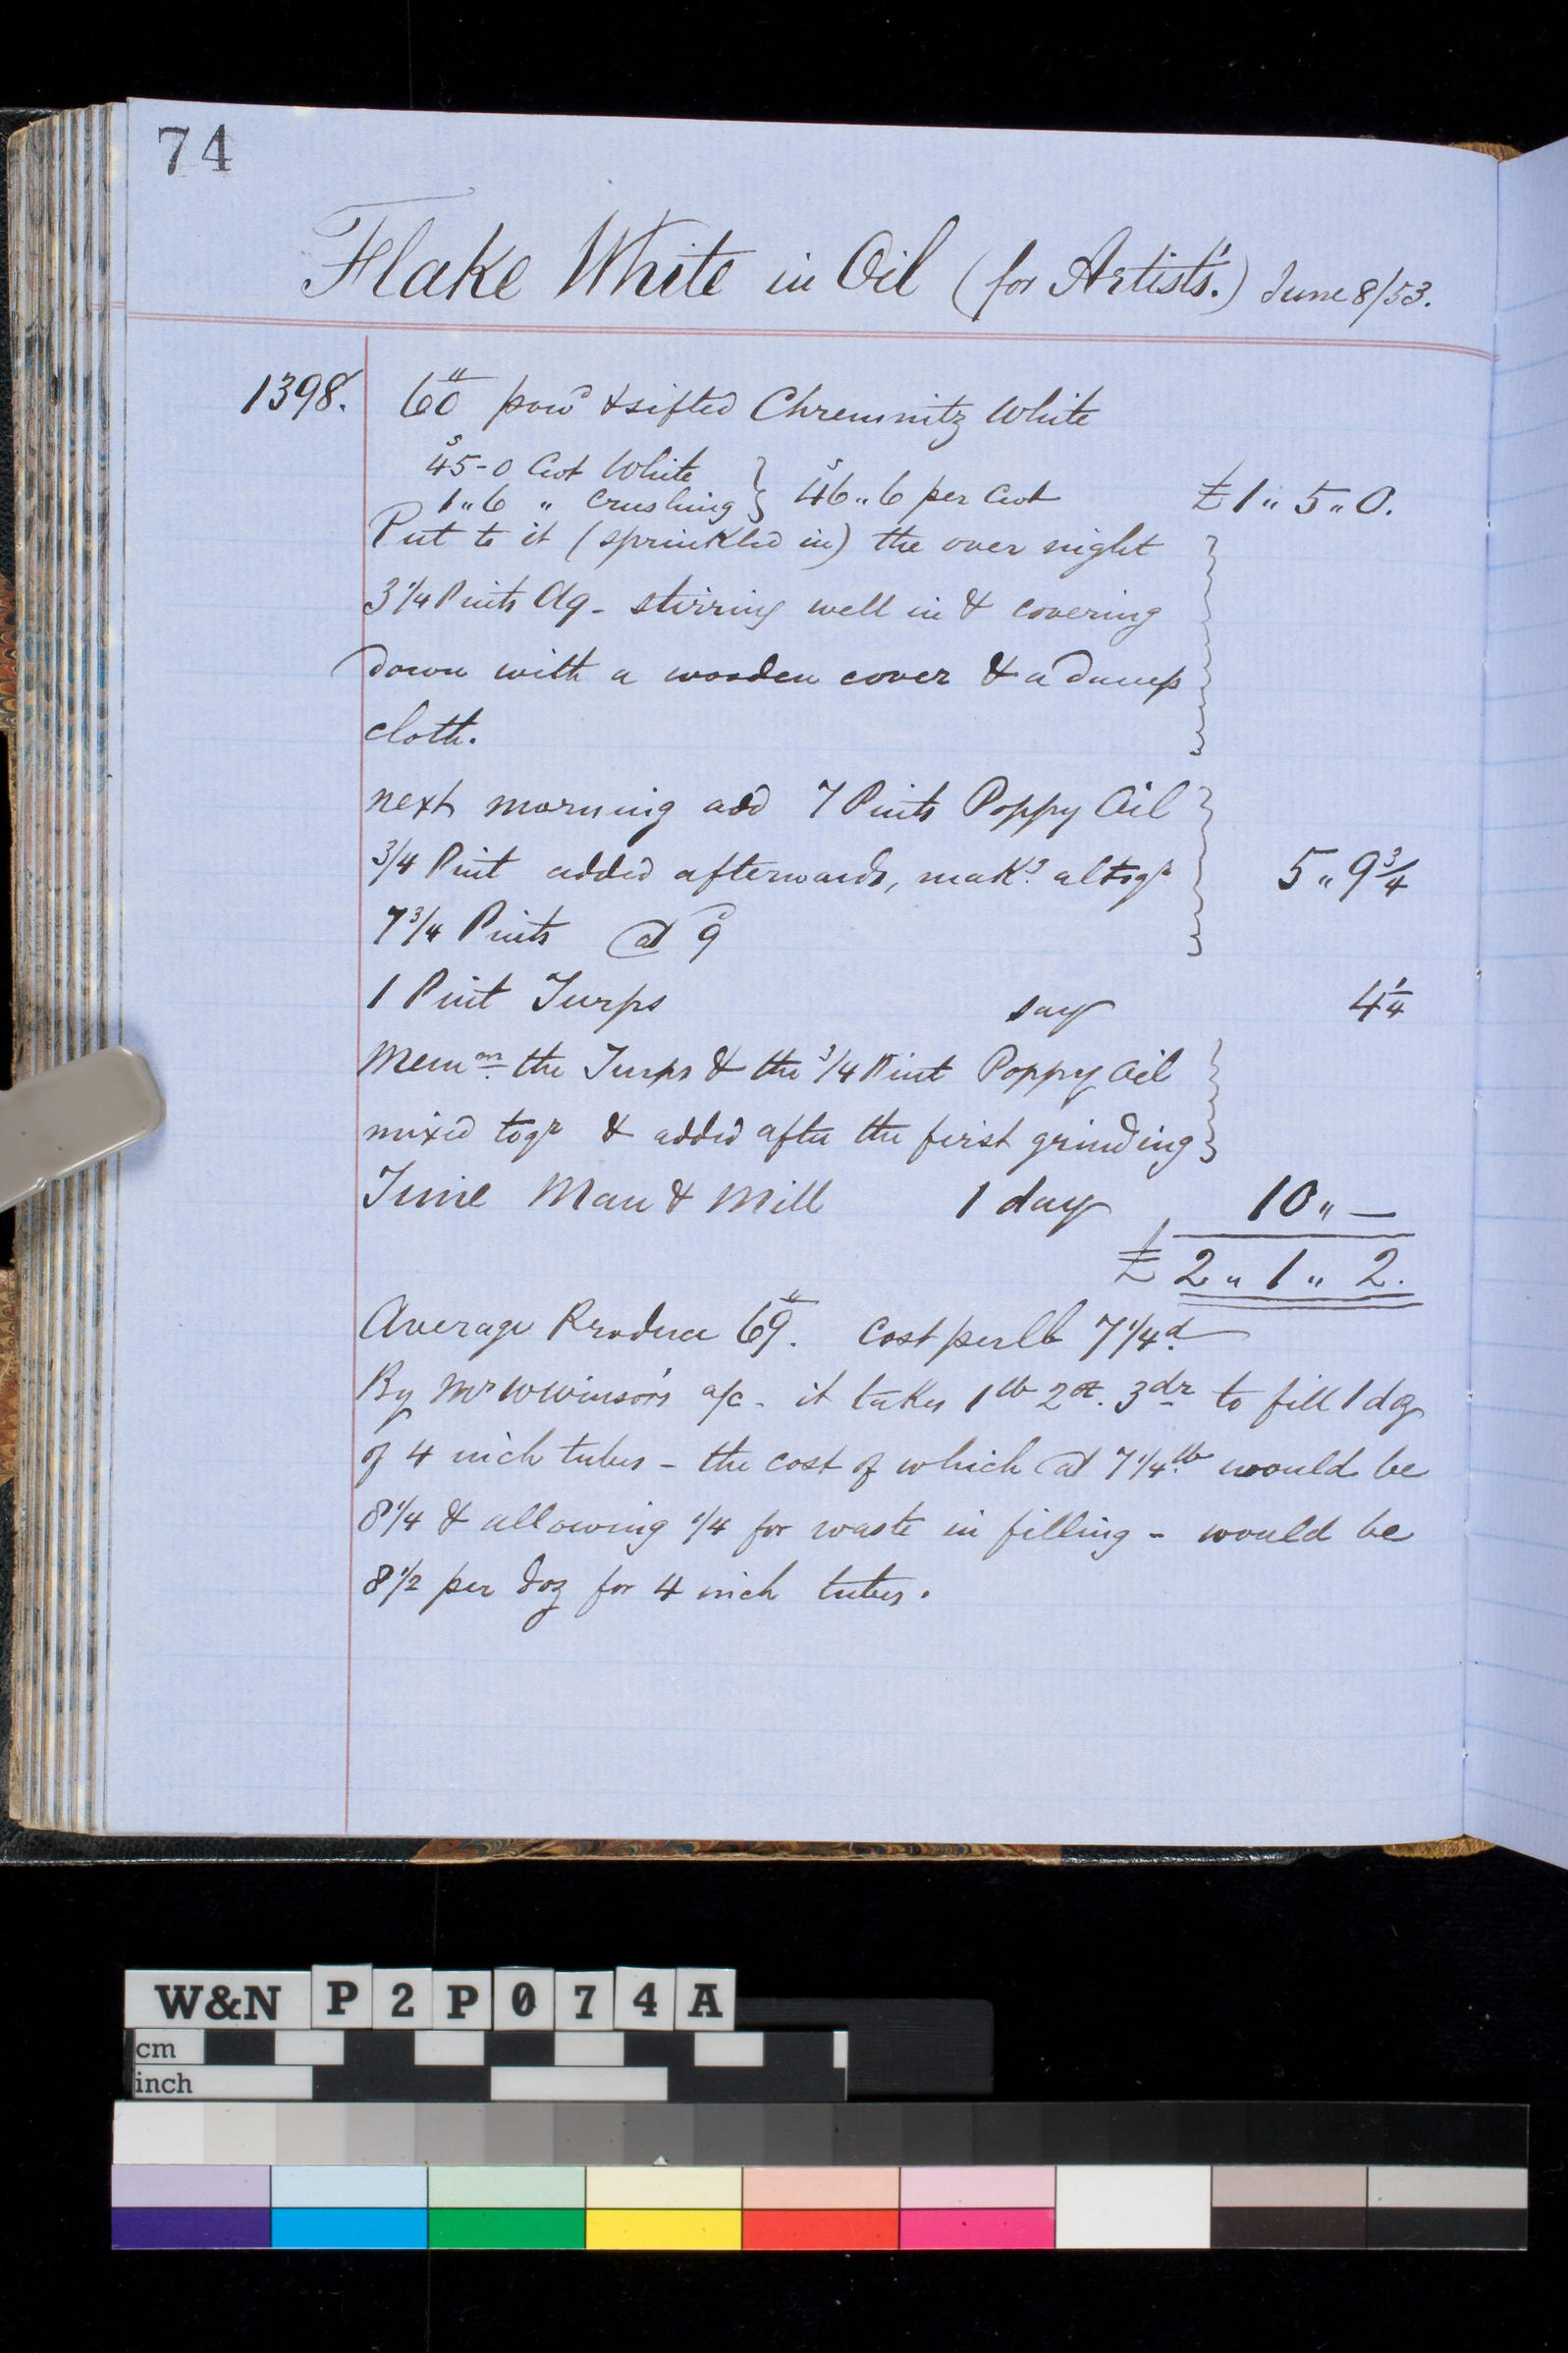 74
Flake White in Oil (for Artist's.) June 8/53.
1398. 60 lb powd & sifted Chremnitz White
45s-0 Cwt White
1„6 „ crushing } 46s„6 per Cwt £1„5„0.
Put to it (sprinkled in) the over night
3 1/4 Pints Aq - stirring well in & covering
down with a wooden cover & a damp
cloth.
next morning add 7 Pints Poppy Oil
3/4 Pint added afterwards, makg altogr 5„9 3/4
7 3/4 Pints @ 9d
1 Pint Turps say 4 1/4
Memm the Turps & the 3/4 Pint Poppy Oil
mixed togr & added after the first grinding
Time Man & Mill 1 day 10„—
£2„1„2.
Average Produce 69 lb. Cost per lb 7 1/4d
By Mr W Winsor's a/c - it takes 1lb 2oz. 3dr to fill 1 dz
of 4 inch tubes - the cost of which @ 7 1/4 lb would be
8 1/4 & allowing 1/4 for waste in filling - would be
8 1/2 per doz for 4 inch tubes.
W&N P2P074A
cm
inch